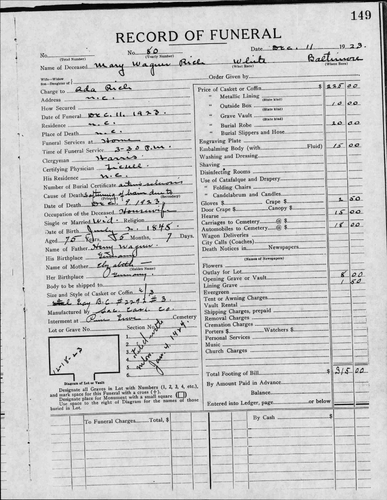 149
RECORD OF FUNERAL
No. 80 Date Dec. 11 1923.
(Total Number) (Yearly Number)
Name of Deceased Mary Wagner Rich White Baltimore
(What Race) (Where Born)
Charge to Ada Rich
Address N.C.
How Secured
Date of Funeral Dec. 11, 1923.
Residence N.C.
Place of Death N.C.
Funeral Services at Home
Time of Funeral Service 3-30 P.M.
Clergyman Harris
Certifying Physician
His Residence N.C.
Number of Burial Certificate
Cause of Death
Date of Death Dec. 9, 1923
Occupation of the Deceased Housewife
Single or Married Wid. Religion
Date of Birth July 2 1845.
Aged 75 Years, 5 Months, 7 Days
Name of Father Henry Wagner
His Birthplace Germany
Name of Mother Elizabeth
(Maiden Name)
Her Birthplace Germany
Body to be shipped to
Size and Style of Casket or Coffin
Manufactured by
Interment at Cemetery
Lot or Grave No. Section No.
Diagram of Lot or Vault
Designate all Graves in Lot with Numbers (1, 2, 3, 4, etc.), and mark space for this Funeral with a cross (+).
Designate place for Monument with a small square (□)
Use space to the right of Diagram for the names of those buried in Lot.
To Funeral Charges Total, $
Order Given by
Price of Casket or Coffin $ 255 00
" Metallic Lining
(State kind)
" Outside Box 10 00
(State kind)
" Grave Vault
(State kind)
" Burial Robe 20 00
(State kind)
" Burial Slippers and Hose
Engraving Plate
Embalming Body (with Fluid) 15 00
Washing and Dressing
Shaving
Disinfecting Rooms
Use of Catafalque and Drapery
" Folding Chairs
" Candelabrum and Candles
Gloves $ Door Crape $ 2 50
Hearse 15 00
Carriages to Cemetery @ $
Automobiles to Cemetery @ $ 18 00
Wagon Deliveries
City Calls (Coaches)
Death Notices in Newspapers
(Names of Newspapers)
Flowers
Outlay for Lot
Opening Grave or Vault 8 00
Lining Grave 1 50
Evergreen
Tent or Awning Charges
Vault Rental
Shipping Charges, prepaid
Removal Charges
Cremation Charges
Porters $ Watchers $
Personal Services
Music
Church Charges
Total Footing of Bill $ 315 00
By Amount Paid in Advance
Balance,
Entered into Ledger, page or below.
By Cash $